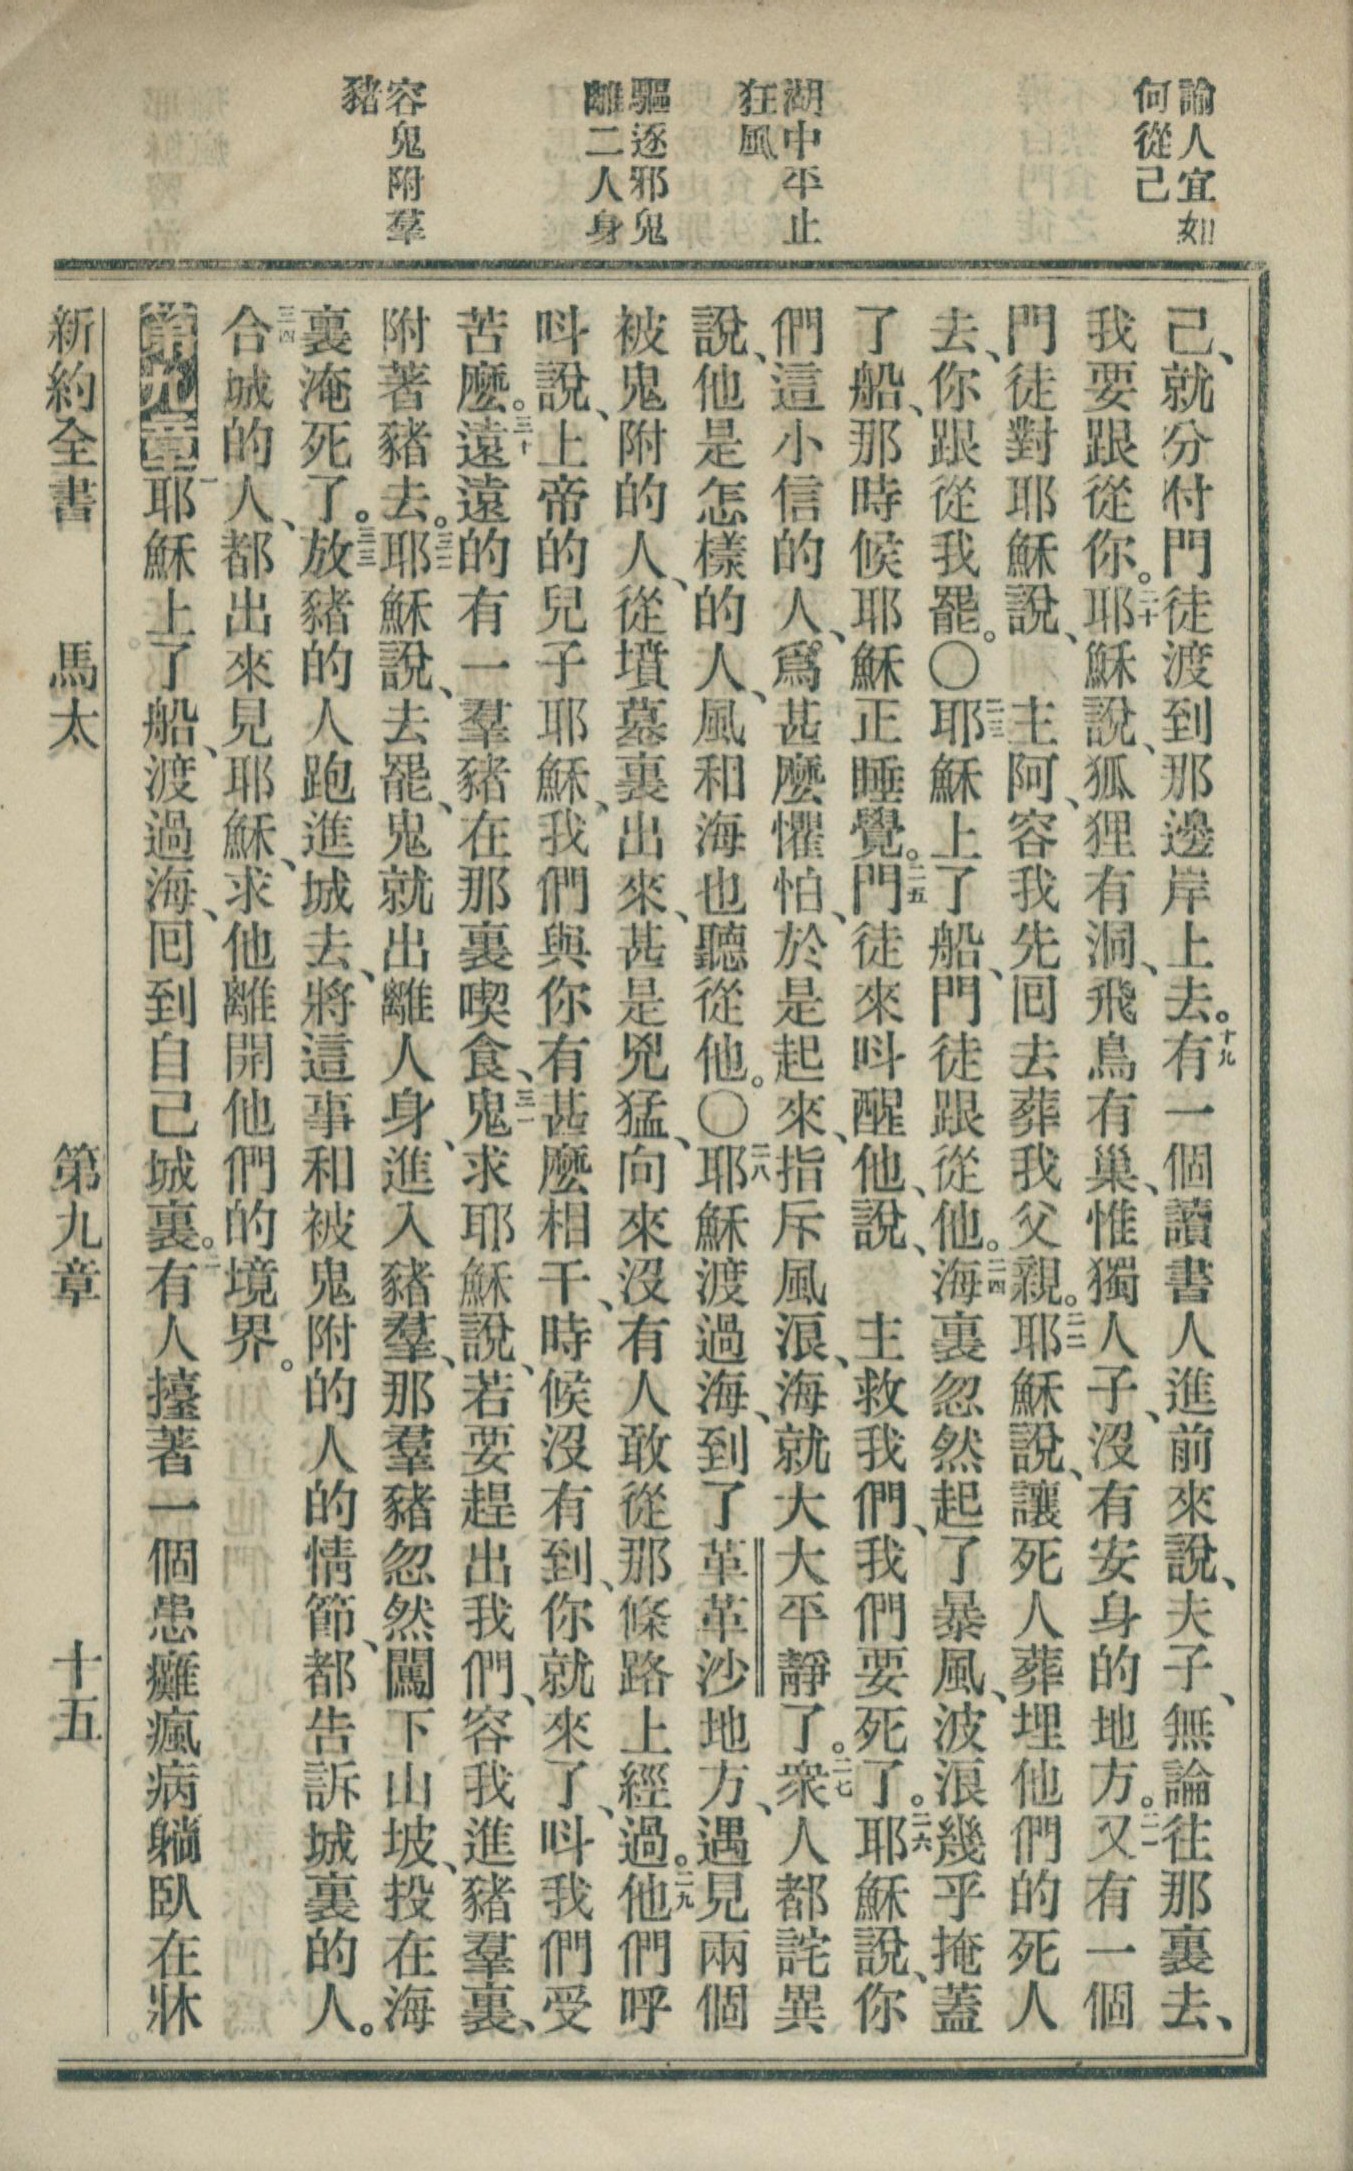 諭人宜如
何從己
湖中平止
狂風
驅逐邪鬼
離二人身
容鬼附羣
豬
己、就分付門徒渡到那邊岸上去。十九有一個讀書人進前來說、夫子、無論往那裏去、
我要跟從你。二十耶穌說、狐狸有洞、飛鳥有巢、惟獨人子、沒有安身的地方。二一又有一個
門徒對耶穌說、 主阿、容我先囘去葬我父親。二二耶穌說、讓死人葬埋他們的死人
去、你跟從我罷。〇二三耶穌上了船、門徒跟從他。二四海裏忽然起了暴風、波浪幾乎掩蓋
了船、那時候耶穌正睡覺。二五門徒來呌醒他、說、 主救我們、我們要死了。二六耶穌說、你
們這小信的人、爲甚麼懼怕、於是起來、指斥風浪、海就大大平靜了。二七衆人都詫異
說、他是怎樣的人、風和海也聽從他。〇二八耶穌渡過海、到了革革沙地方、遇見兩個
被鬼附的人、從墳墓裏出來、甚是兇猛、向來沒有人敢從那條路上經過。二九他們呼
呌說、上帝的兒子耶穌、我們與你有甚麼相干、時候沒有到、你就來了、呌我們受
苦麼。三十遠遠的有一羣豬在那裏喫食、三一鬼求耶穌說、若要趕出我們、容我進豬羣裏、
附著豬去。三二耶穌說、去罷、鬼就出離人身、進入豬羣、那羣豬忽然闖下山坡、投在海
裏淹死了。三三放豬的人跑進城去、將這事和被鬼附的人的情節、都告訴城裏的人。
三四合城的人、都出來見耶穌、求他離開他們的境界。
第九章一耶穌上了船、渡過海、囘到自己城裏。二有人擡著一個患癱瘋病躺臥在牀
新約全書 馬太 第九章 十五